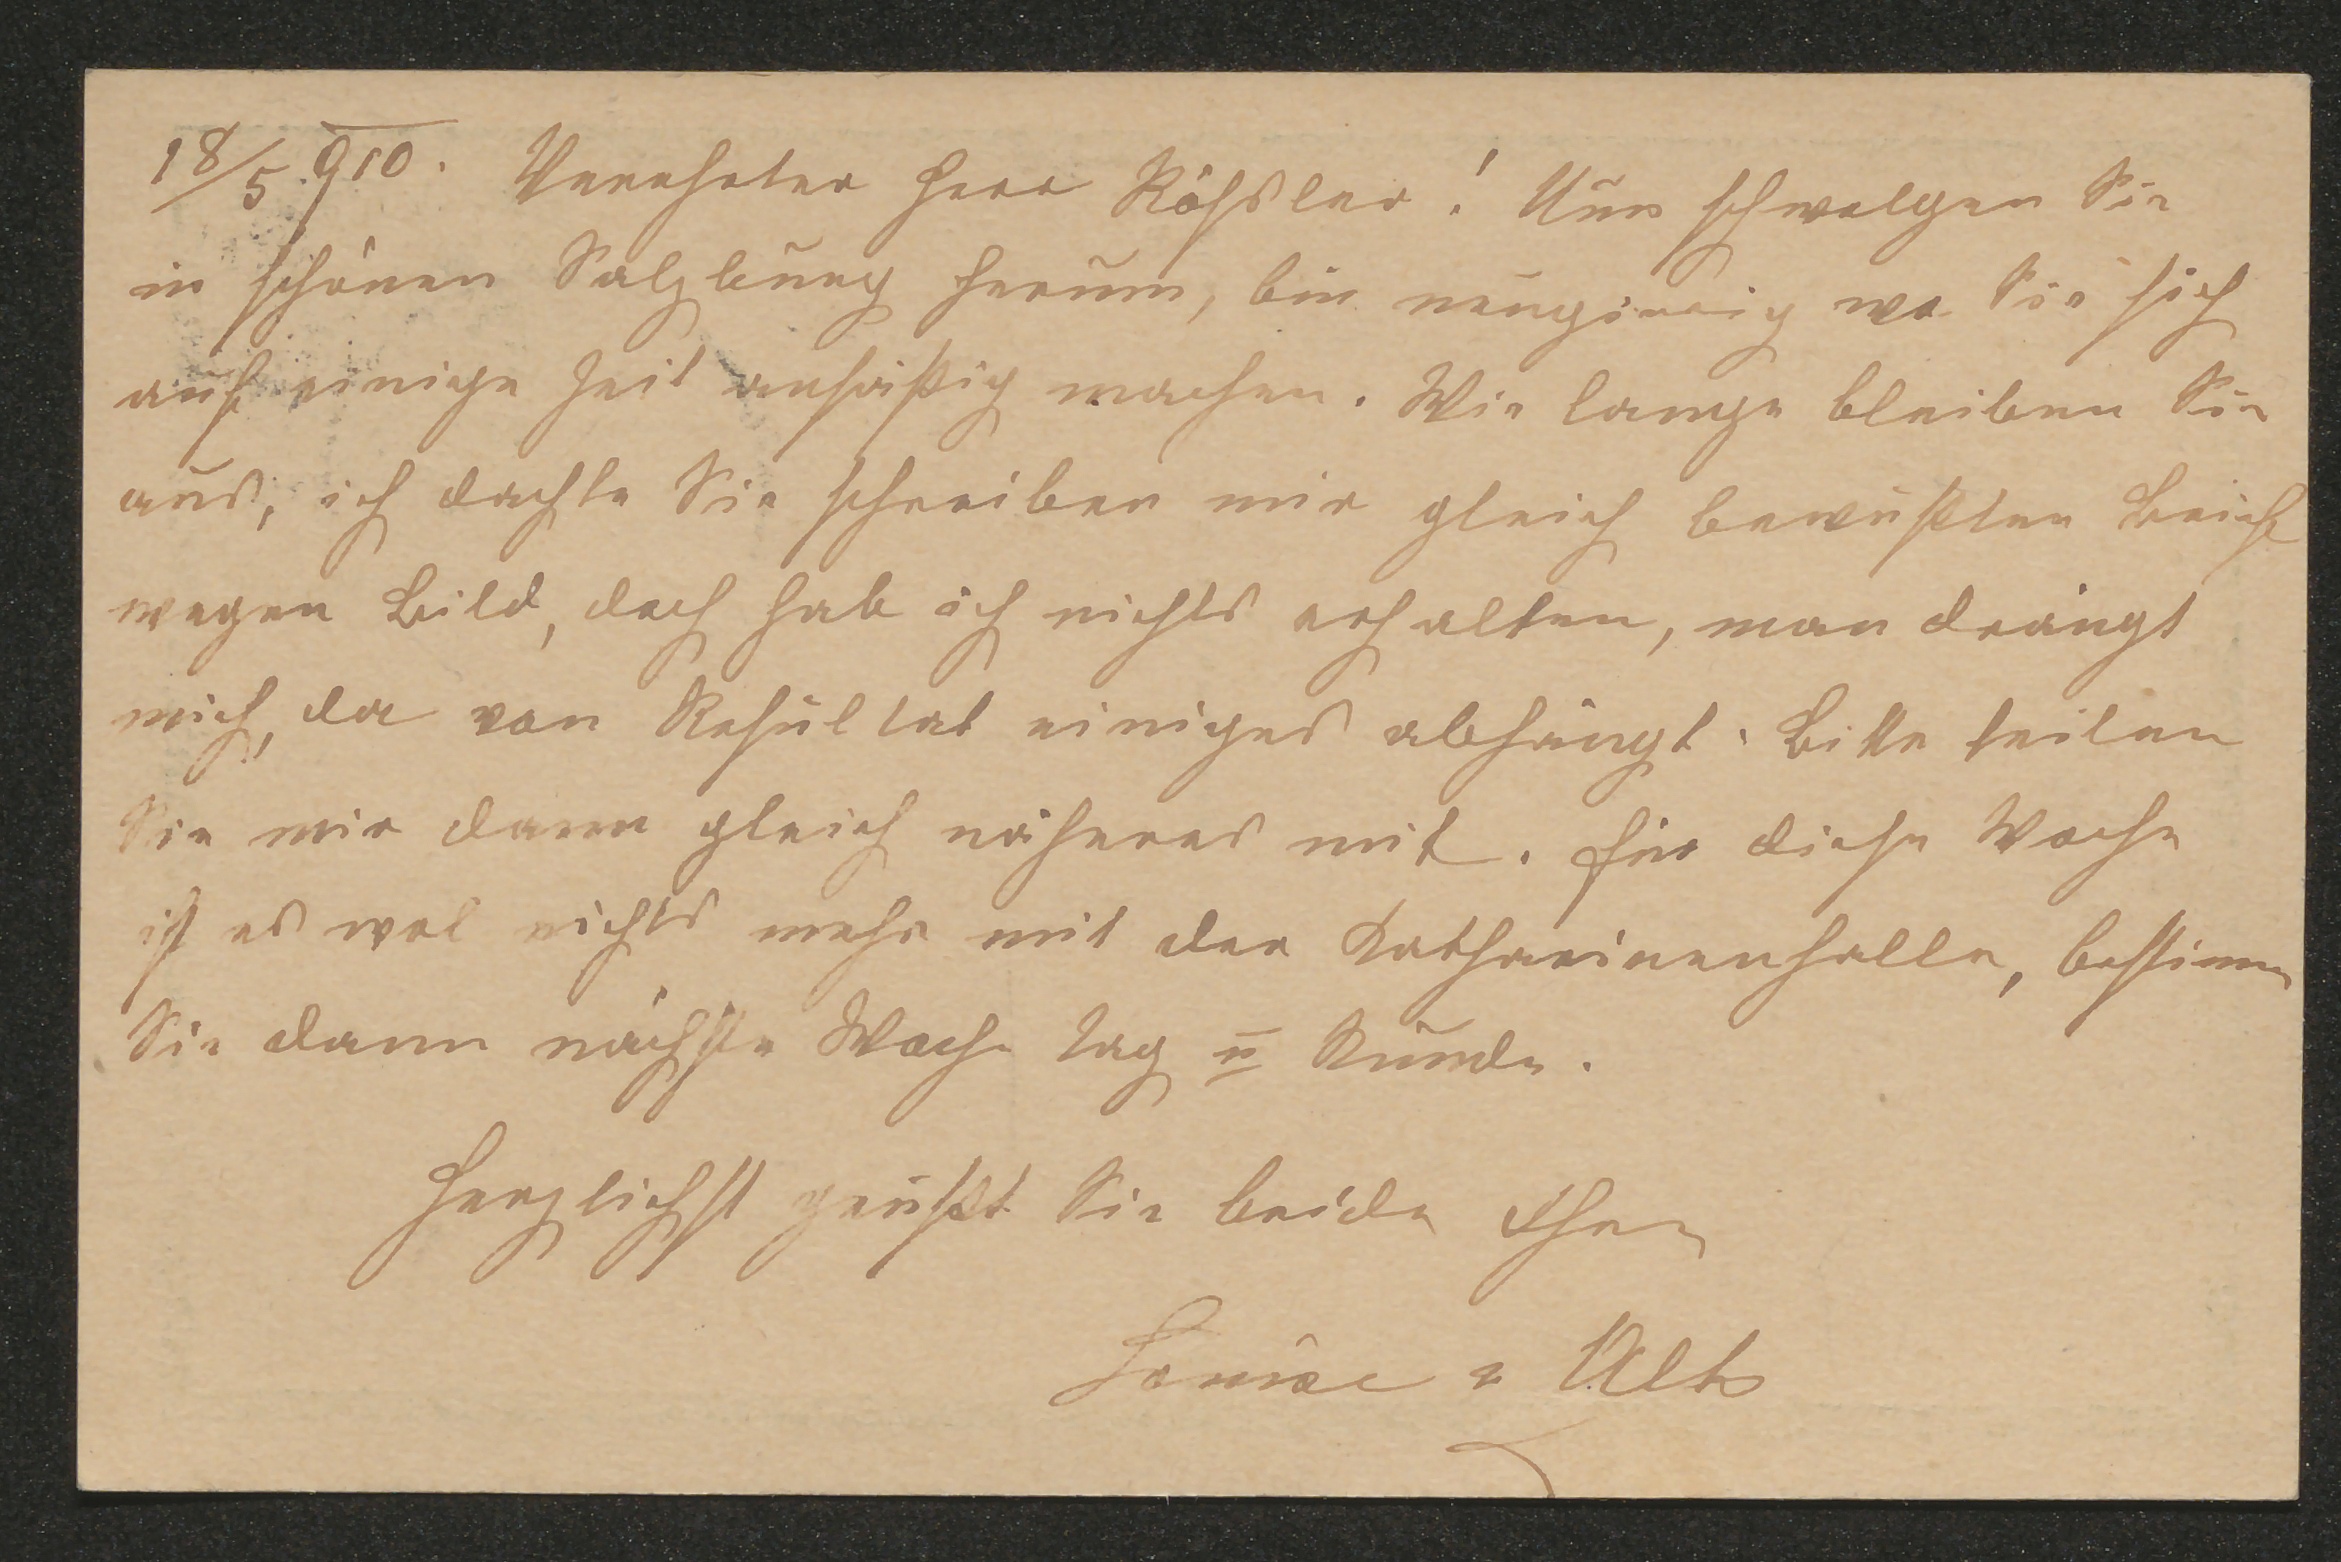 18/5. 910. Verehrter Herr Rößler! Nun schwelgen Sie
in schönen Salzburg herum, bin neugierig wo Sie sich
auf einige Zeit ansäßig machen. Wie lange bleiben Sie
aus, ich dachte Sie schreiben mir gleich bewußten Brief
wegen Bild, doch hab ich nichts erhalten, man drängt
mich, da von Resultat einiges abhängt. Bitte teilen
Sie mir dann gleich näheres mit. Für diese Woche
ist es wol nichts mehr mit der Katharinenhalle, bestimmen
Sie dann nächste Woche Tag u Stunde.
Herzlichst grüßt Sie beide Ihre
Louise v Alt